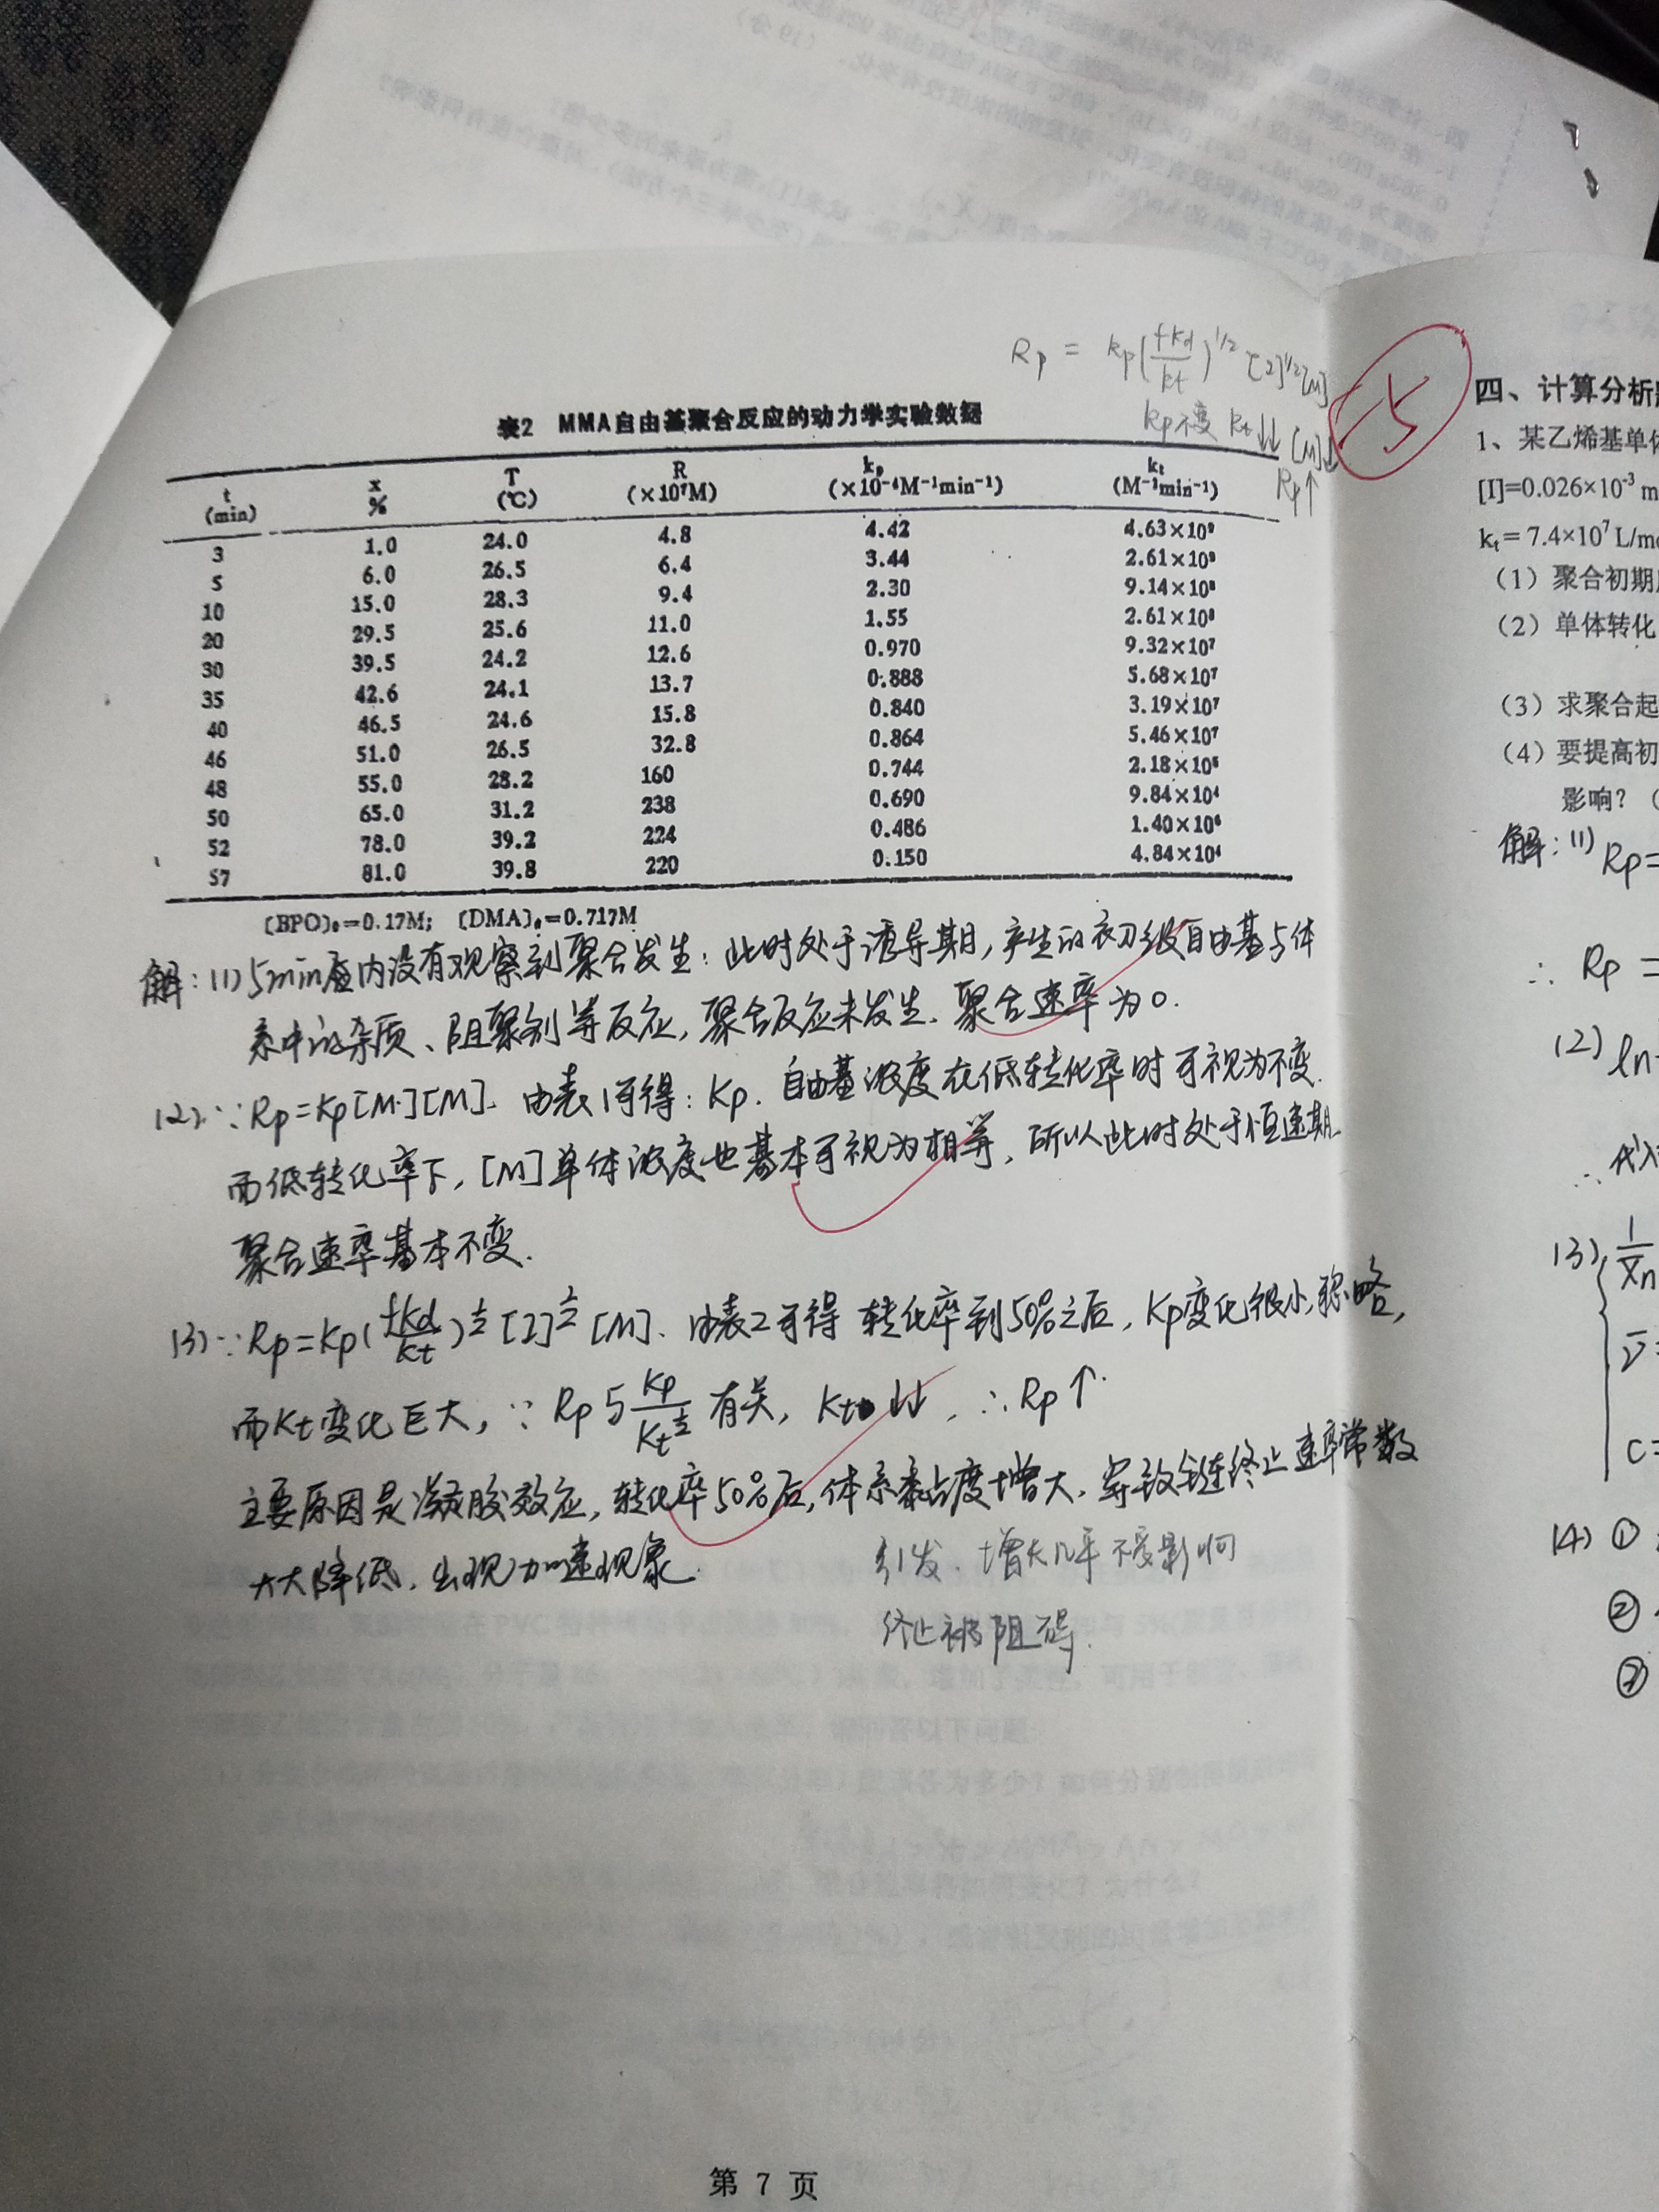 Rp = kp(fkd/kt)^1/2 [I]^1/2[M]
kp不变 kt↓↓ [M]↓
Rp↑
表2 MMA自由基聚合反应的动力学实验数据
t (min) x % T (℃) R (×10⁷M) kp (×10⁻⁴M⁻¹min⁻¹) kt (M⁻¹min⁻¹)
3 1.0 24.0 4.8 4.42 4.63×10⁹
5 6.0 26.5 6.4 3.44 2.61×10⁹
10 15.0 28.3 9.4 2.30 9.14×10⁸
20 29.5 25.6 11.0 1.55 2.61×10⁸
30 39.5 24.2 12.6 0.970 9.32×10⁷
35 42.6 24.1 13.7 0.888 5.68×10⁷
40 46.5 24.6 15.8 0.840 3.19×10⁷
46 51.0 26.5 32.8 0.864 5.46×10⁷
48 55.0 28.2 160 0.744 2.18×10⁵
50 65.0 31.2 238 0.690 9.84×10⁴
52 78.0 39.2 224 0.486 1.40×10⁶
57 81.0 39.8 220 0.150 4.84×10⁴
[BPO]₀=0.17M; [DMA]₀=0.717M
解:(1) 5min内没有观察到聚合发生:此时处于诱导期,产生的初级自由基与体
系中的杂质、阻聚剂等反应,聚合反应未发生.聚合速率为0.
(2) ∵Rp=Kp[M·][M]. 由表1可得:Kp.自由基浓度在低转化率时可视为不变.
而低转化率下,[M]单体浓度也基本可视为相等,所以此时处于恒速期.
聚合速率基本不变.
(3) ∵Rp=Kp(fKd/Kt)^½[I]^½[M]. 由表2可得 转化率到50%之后,Kp变化很小,忽略,
而Kt变化巨大,∵Rp与Kp/Kt^½有关,Kt↓↓,∴Rp↑.
主要原因是凝胶效应,转化率50%后,体系黏度增大.导致链终止速率常数
大大降低.出现加速现象.
引发.增长几乎不受影响
终止被阻碍.
第 7 页
四、计算分析
1、某乙烯基单体
[I]=0.026×10⁻³ m
kt= 7.4×10⁷ L/mo
(1)聚合初期
(2)单体转化
(3)求聚合起
(4)要提高初
影响?(
解:(1) Rp=
∴ Rp =
(2) ln
(3) 1/Xn
ν̄=
C=
(4) ①
②
③